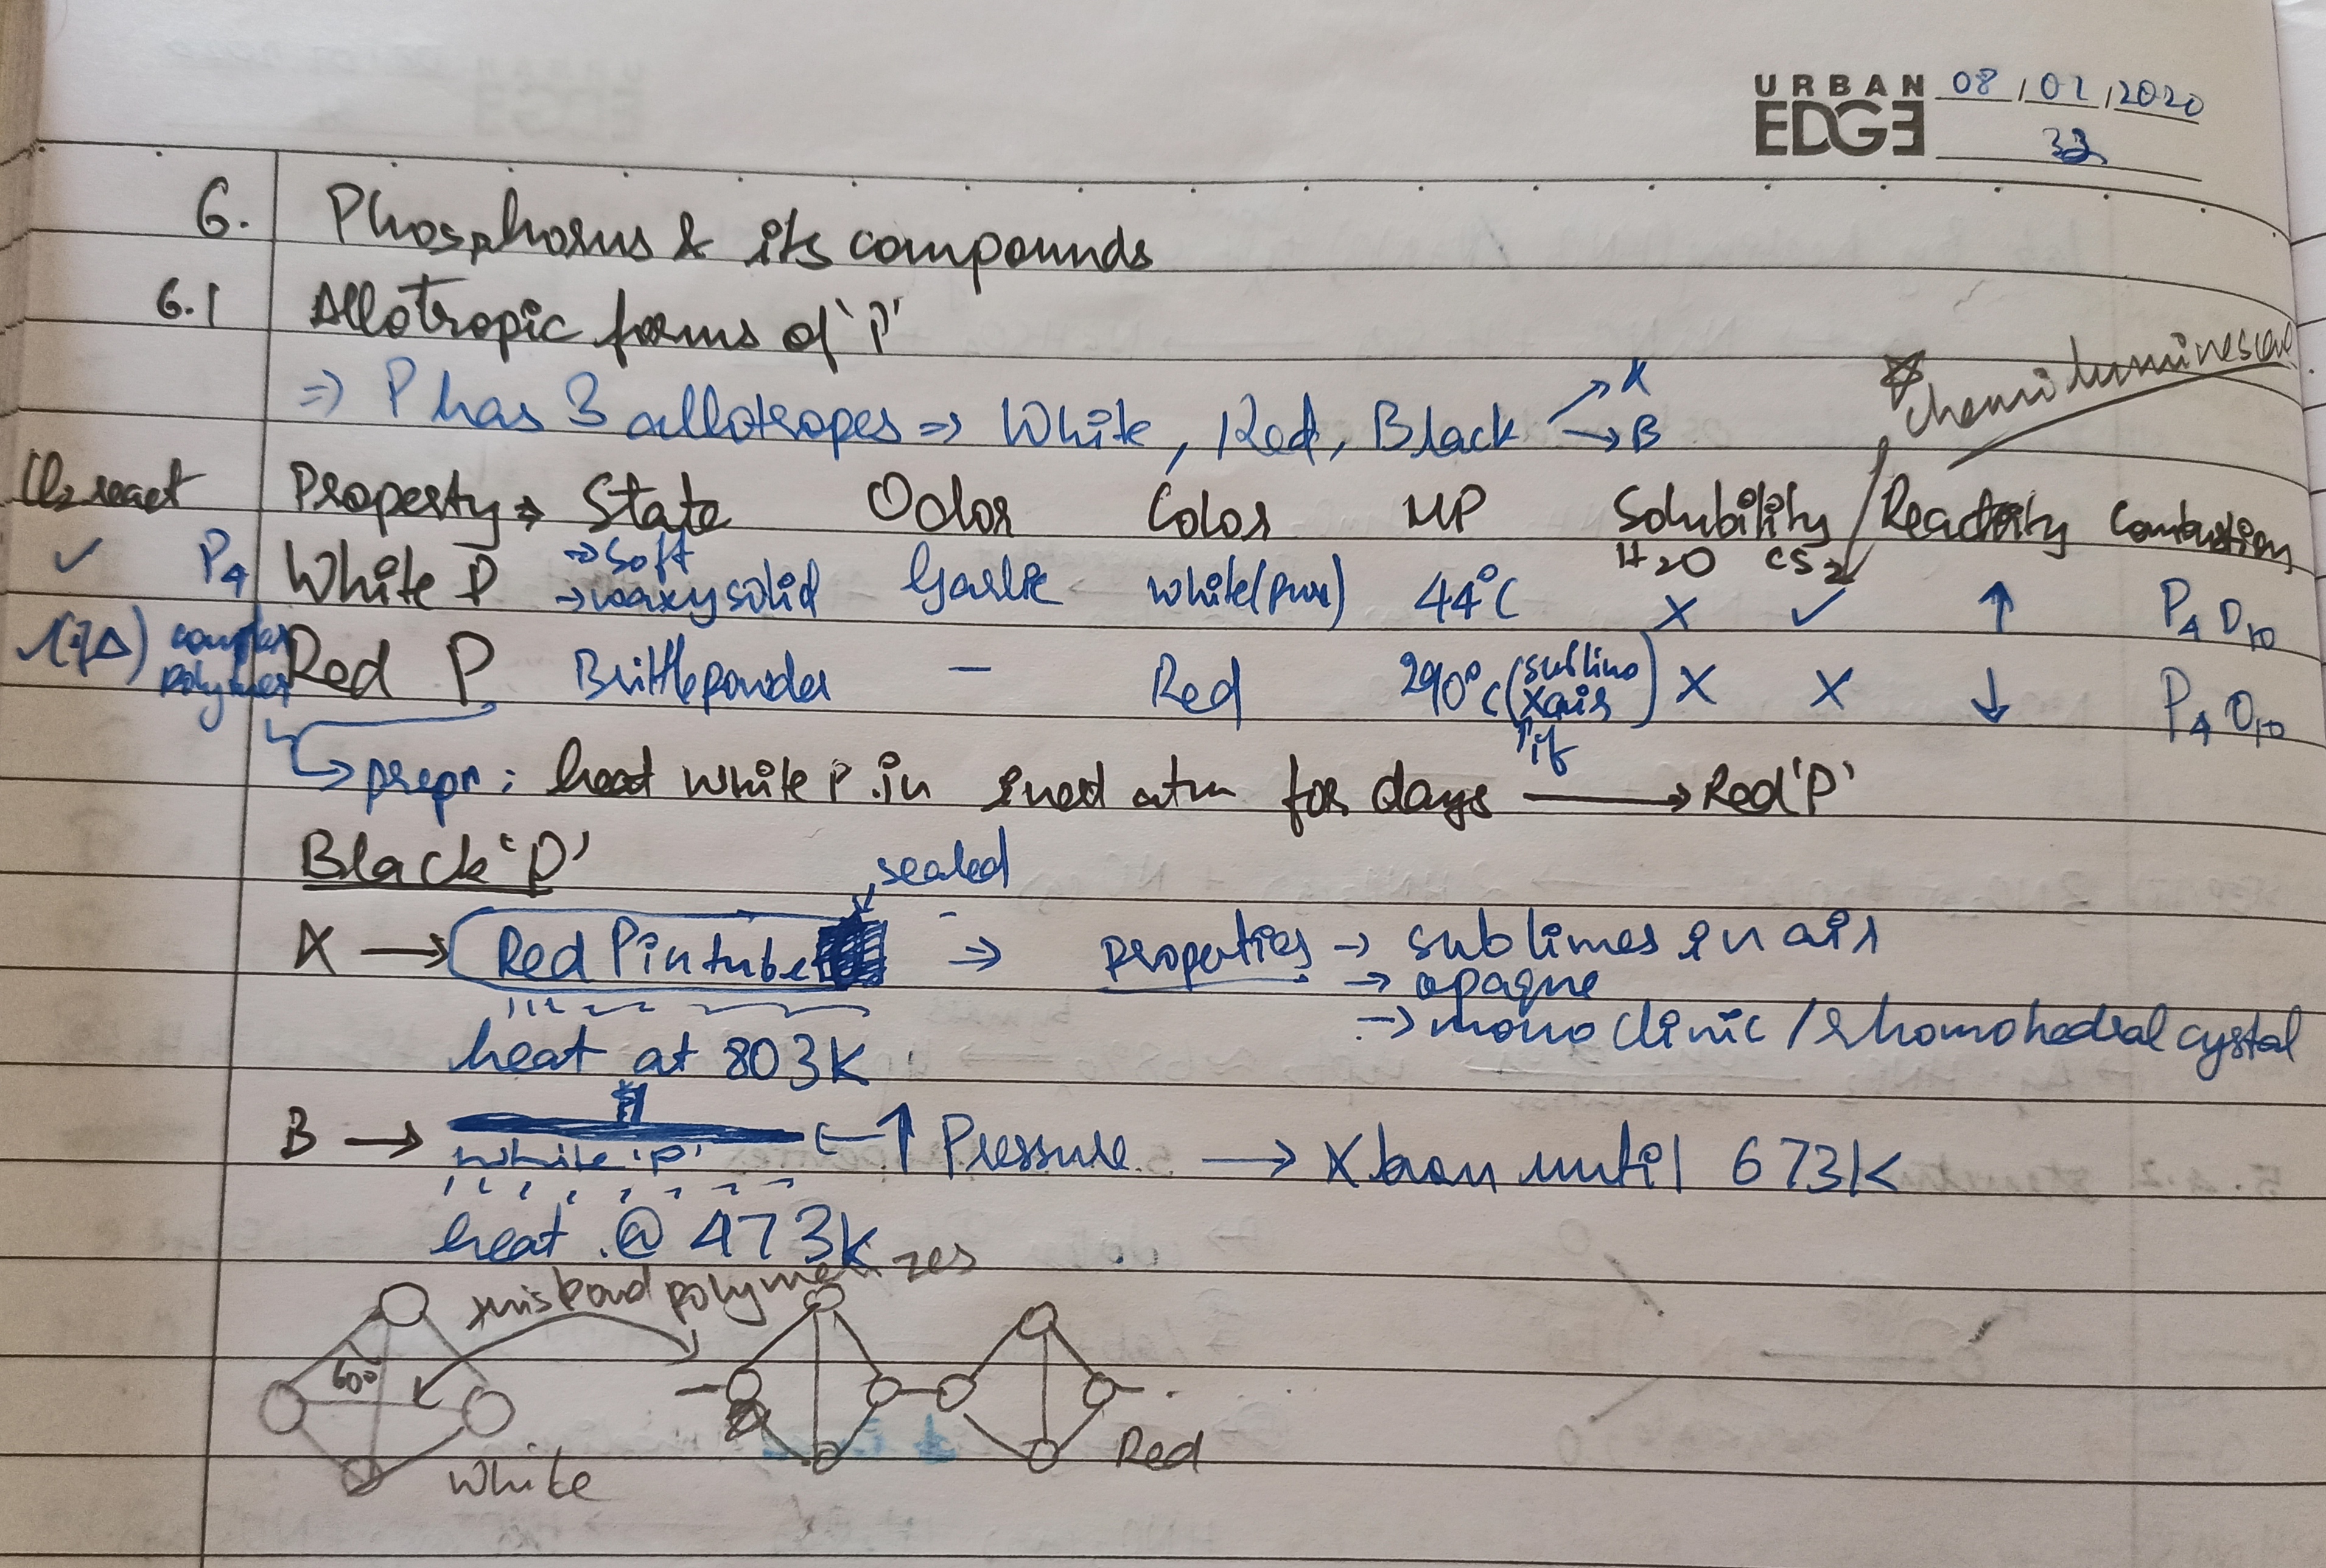 URBAN EDGE 08/02/2020
33
6. Phosphorus & its compounds
6.1 Allotropic forms of 'P'
⇒ P has 3 allotropes ⇒ White, Red, Black → α
→ β
☆ chemiluminescence
Cl₂ react Property ⇒ State Odor Color MP Solubility Reactivity Combustion
H₂O CS₂
✓ P₄ White P → soft → waxy solid Garlic white (pure) 44°C X ✓ ↑ P₄O₁₀
✓ (if Δ) complex polymer Red P Brittle powder – Red 290°C (sublime X air if) X X ↓ P₄O₁₀
↳ prepn: heat white P in inert atm for days → Red 'P'
Black 'P'
sealed
α → Red P in tube ⇒ properties → sublimes in air
→ opaque
→ monoclinic / rhomohedral cystal
heat at 803K
β → white 'P' ← ↑ Pressure → X burn until 673K
heat @ 473K
this bond polymerizes
60°
White
Red